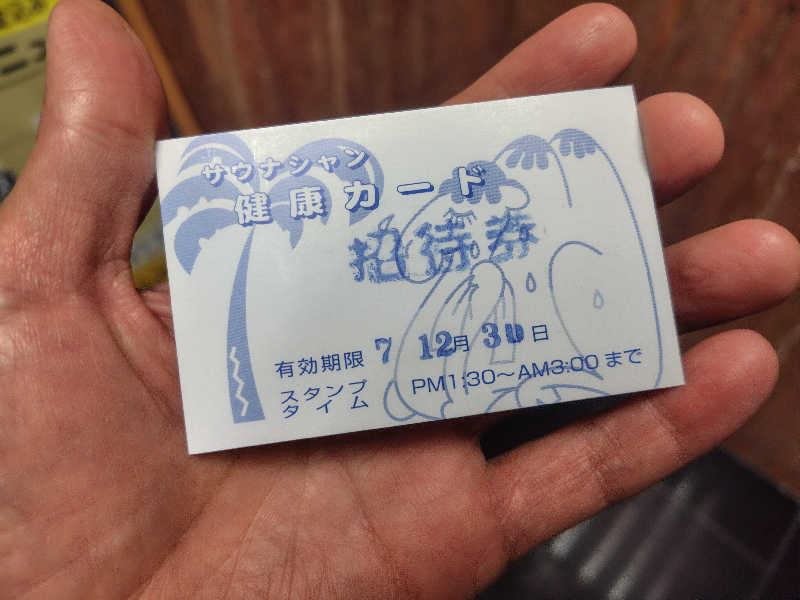 サウナシャン
健康カード
招待券
有効期限 7 12月 30日
スタンプ
タイム
PM1:30～AM3:00 まで